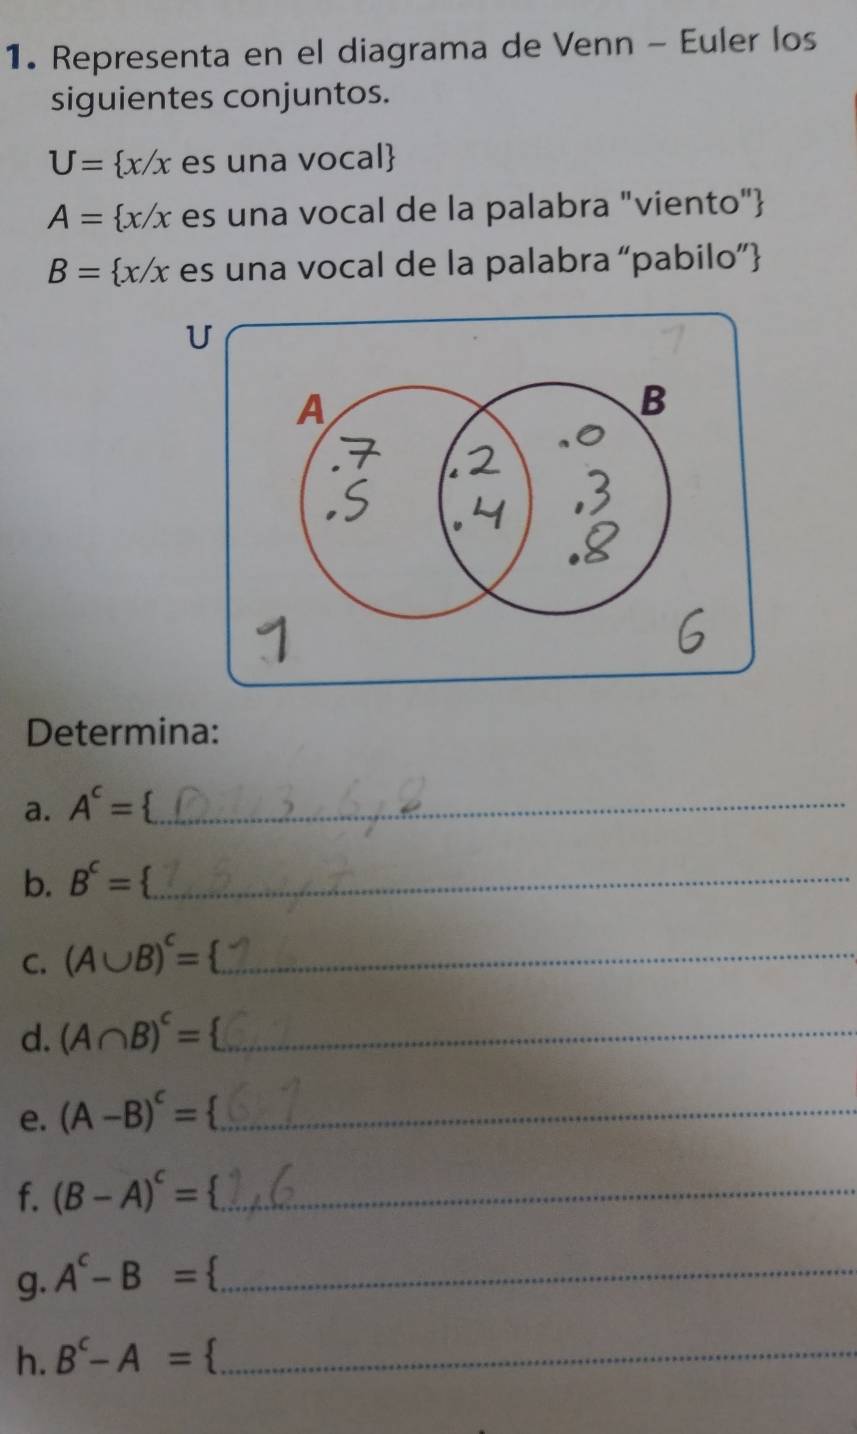 1. Representa en el diagrama de Venn – Euler los
siguientes conjuntos.
U = {x/x es una vocal}
A = {x/x es una vocal de la palabra "viento"}
B = {x/x es una vocal de la palabra “pabilo”}
U
A B
.7 .2 .0
.5 .4 .3
.8
1 6
Determina:
a. Aᶜ = {
b. Bᶜ = {
c. (A∪B)ᶜ = { 1
d. (A∩B)ᶜ = {
e. (A –B)ᶜ = { 6 1
f. (B – A)ᶜ = { 1,6
g. Aᶜ – B = {
h. Bᶜ – A = {